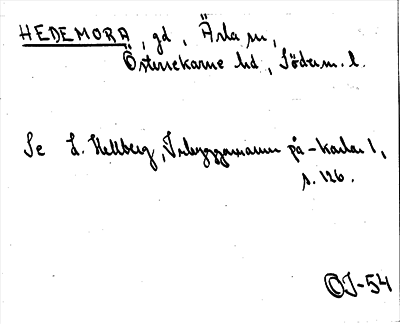 HEDEMORA, gd, Ärla sn,
Österrekarne hd, Söderm. l.
Se L. Hellberg, Inbyggarnamn på -karlar 1,
s. 126.
OJ-54